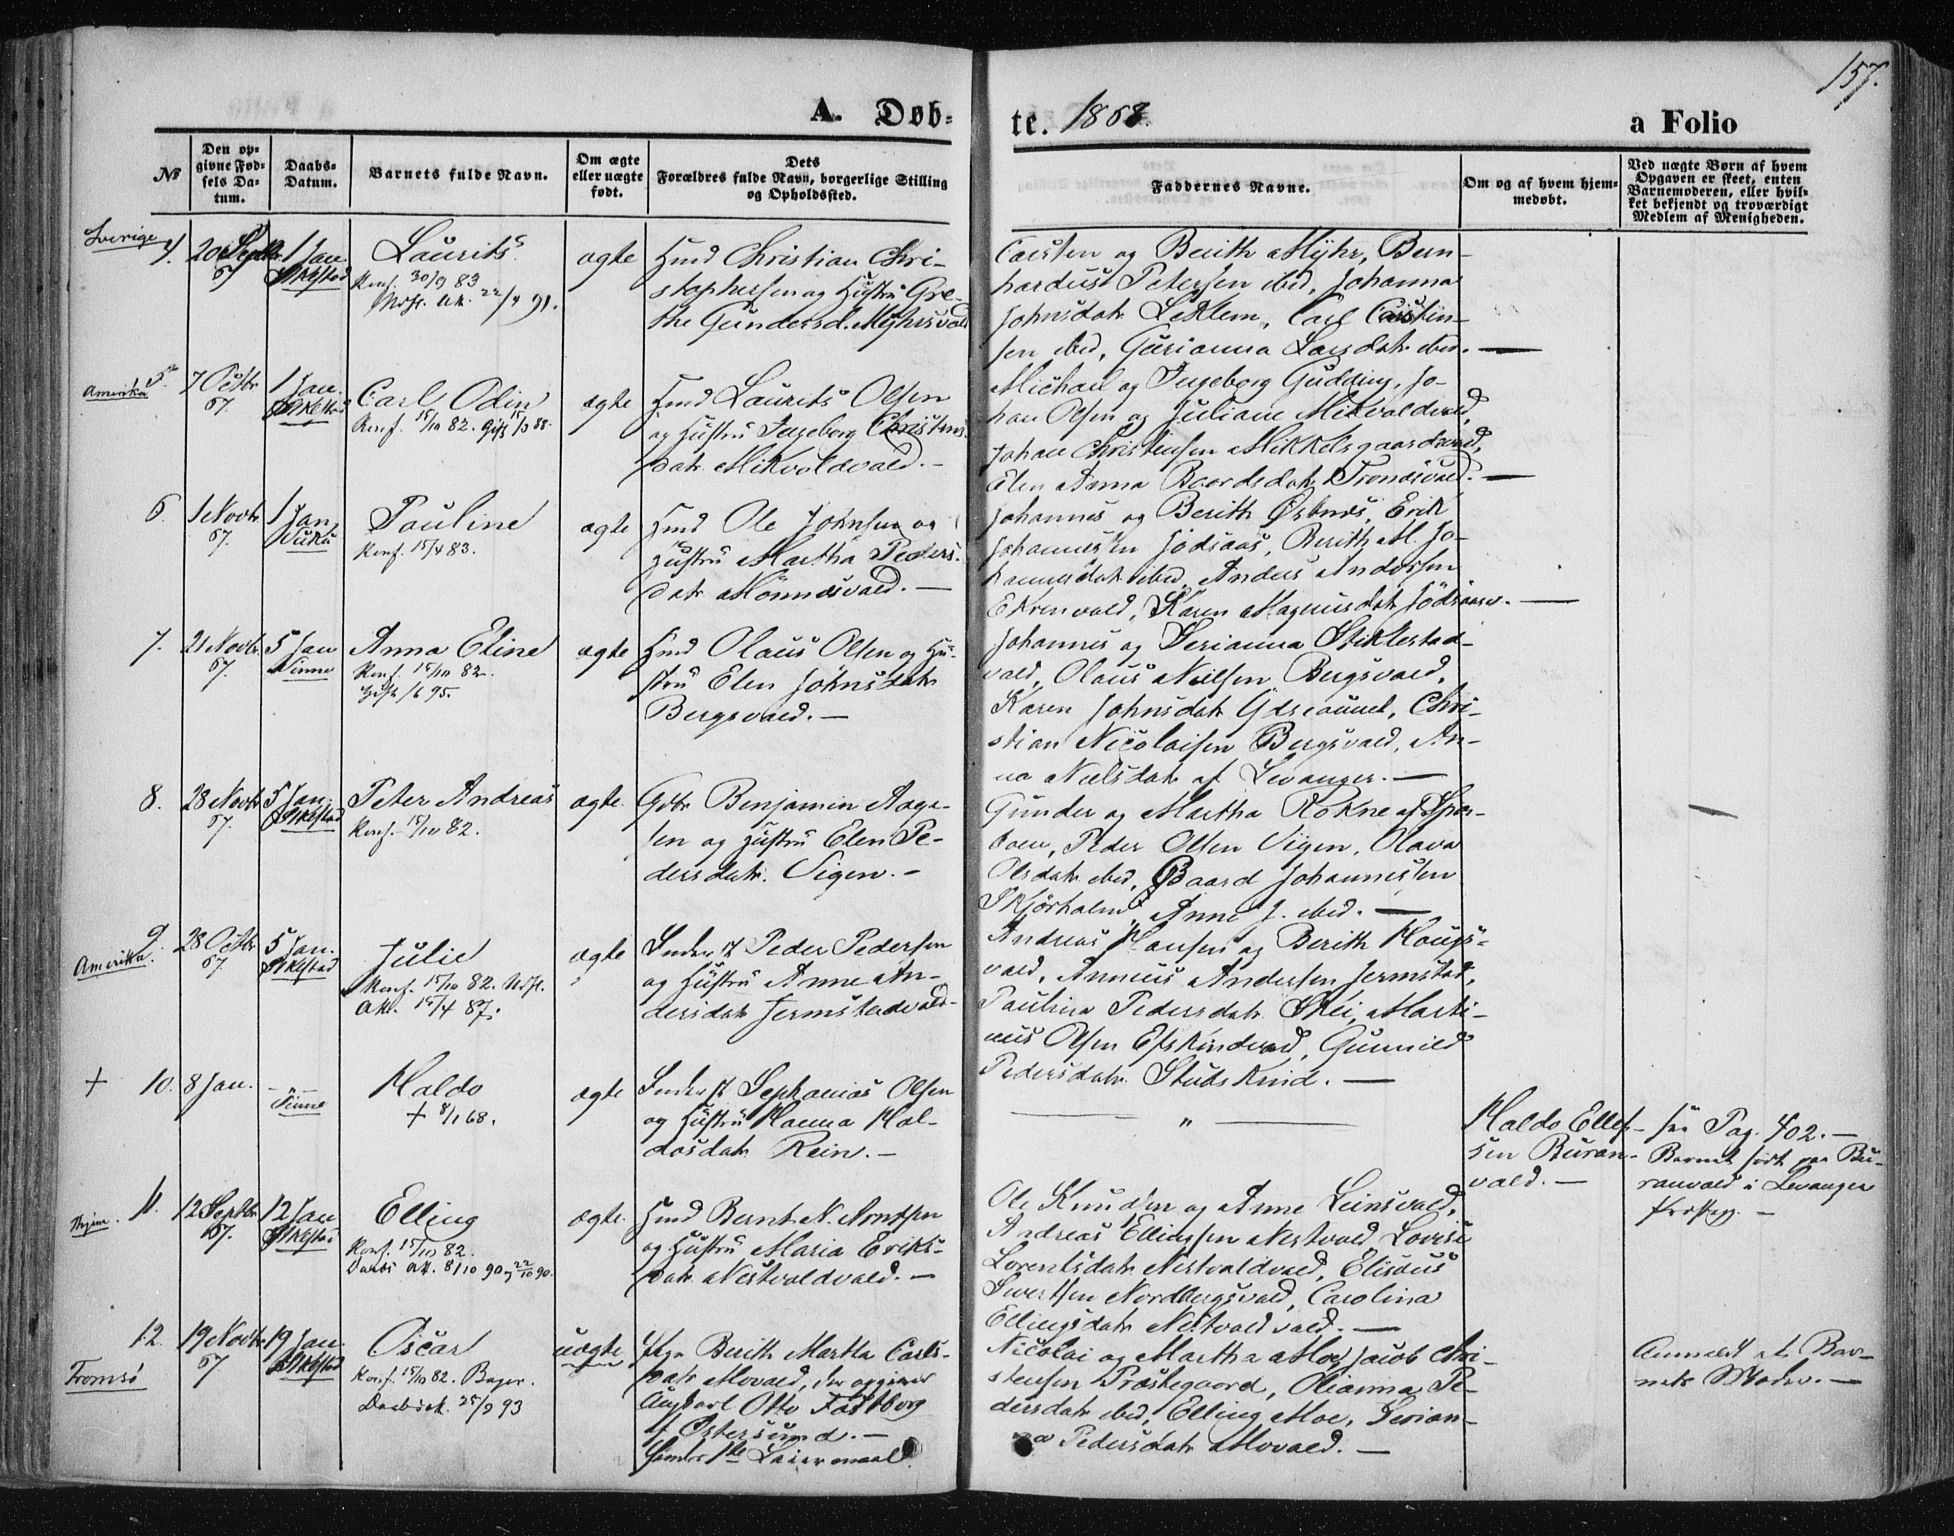 157.
A. Døb-
te. 1868.
a Folio
No
Den op-
givne Fød-
sels Da-
tum.
Daabs-
Datum.
Barnets fulde Navn.
Om ægte
eller uægte
født.
Dets
Forældres fulde Navn, borgerlige Stilling
og Opholdssted.
Faddernes Navne.
Om og af hvem hjem-
medøbt.
Ved uægte Børn af hvem
Opgaven er skeet, enten
Barnemoderen, eller hvil-
ket bekjendt og troværdigt
Medlem af Menigheden.
Sverige
4. 20 Septbr 67 1 Jan Stklestad
Laurits
Konf. 30/9 83
Udfl. Att. 22/4 91.
ægte
Hmd Christian Chri-
stophersen og Hustru Gre-
the Gundersd. Myhrsvald
Carsten og Berith Myhr, Bern-
hardus Petersen ibid, Johanna
Johnsdatr Leklem, Carl Carstin-
sen ibid, Gurianna Larsdatr ibid. —
Amerika
5. 7 Octbr 67. 1 Jan. Stklestad
Carl Odin
Konf. 15/10 82. Gift 15/3 88.
ægte
Hmd Laurits Olsen
og Hustru Ingeborg Christens
datr Mikvoldvald. —
Michael og Ingeborg Gudding, Jo-
han Olsen og Juliane Mikvoldvald,
Johan Christensen Mikkelsgaardsvald,
Elen Anna Baardsdatr Trondsvald. —
6. 1 Novbr 67. 1 Jan. Vuku
Pauline
Konf. 15/4 83.
ægte
Hmd Ole Johnsen og
Hustru Martha Peders-
datr Mönnesvald. —
Johannes og Berith Østnes, Erik
Johannessen Jødsaas, Berith M. Jo-
hannesdatr ibid, Anders Andersen
Ekrenvald, Karen Magnusdatr Jödsaasv. —
7. 21 Novbr 67. 5 Jan Vinne
Anna Eline
Konf. 15/10 82.
Gift /6 95.
ægte
Hmd Olaus Olsen og Hu-
stru Elen Johnsdatr
Bergsvald. —
Johannes og Serianna Stiklestad-
vald, Olaus Nielsen Bergsvald,
Karen Johnsdatr, Chri-
stian Nicolaisen Bergsvald, An-
na Nielsdatr af Levanger. —
8. 28 Novbr 67. 5 Jan. Stklestad
Peter Andreas
Konf. 15/10 82.
ægte
Gbr Benjamin Aage-
sen og Hustru Elen Pe-
dersdatr. Vigen. —
Gunder og Martha Rokne af Spar-
boen, Peder Olsen Vigen, Olava
Olsdatr ibid, Baard Johannessen
Skjørholm, Anne J. ibid. —
—
Amerika.
9. 28 Octbr 67. 5 Jan. Stklestad
Julie
Konf. 15/10 82. Udfl.
Att. 15/4 87.
ægte
Inderst Peder Pedersen
og Hustru Anne An-
dersdatr Jermstadvald—
Andreas Hansen og Berith Haugs-
vald, Anneus Andersen Jermstad,
Paulina Pedersdatr Skei, Marti-
nus Olsen Eklskindvald, Gunnild
Pedersdatr Studskind. —
+
10. 8 Jan. — " — Vinne
Haldo
+ 8/1 68.
ægte
Inderst Sephanias Olsen
og Hustru Hanna Hal-
dosdatr Rein. —
— " —
Haldo Ellef-
sen Buran-
vald. —
see Pag. 402. —
Barnet født paa Bu-
ranvald i Levanger
Prstgj. —
Hegne.
11. 12 Septbr 67. 12 Jan Stklestad
Elling
Konf. 15/10 82.
Daabs Att. 8/10 90, 22/10 90.
ægte.
Hmd Bernt N. Arntsen
og Hustru Maria Eriks-
datr Nestvoldvald. —
Ole Knudsen og Anne Leinsvald,
Andreas Ellingsen Nestvald, Lovise
Lorentsdatr Nestvaldvald, Elisæus
Sivertsen Nordbergsvald, Carolina
Ellingsdatr Nestvaldvald. —
Tromsø
12. 19 Novbr 67 19 Jan Stklestad
Oscar
Konf. 15/10 82. Bager.
Daabsatt. 25/9 93
uægte
Pige Berith Martha Carls-
datr Movald, der opgiver
Ungkarl Otto Fastborg
af Østersund. —
Hendes 1ste Leiermaal.
Nicolai og Martha Moe, Jacob Chri-
stensen Præstegaard, Olianna Pe-
dersdatr ibid, Elling Moe, Serian-
na Pedersdatr Movald. —
Anmeldt at Bar-
nets Moder. —